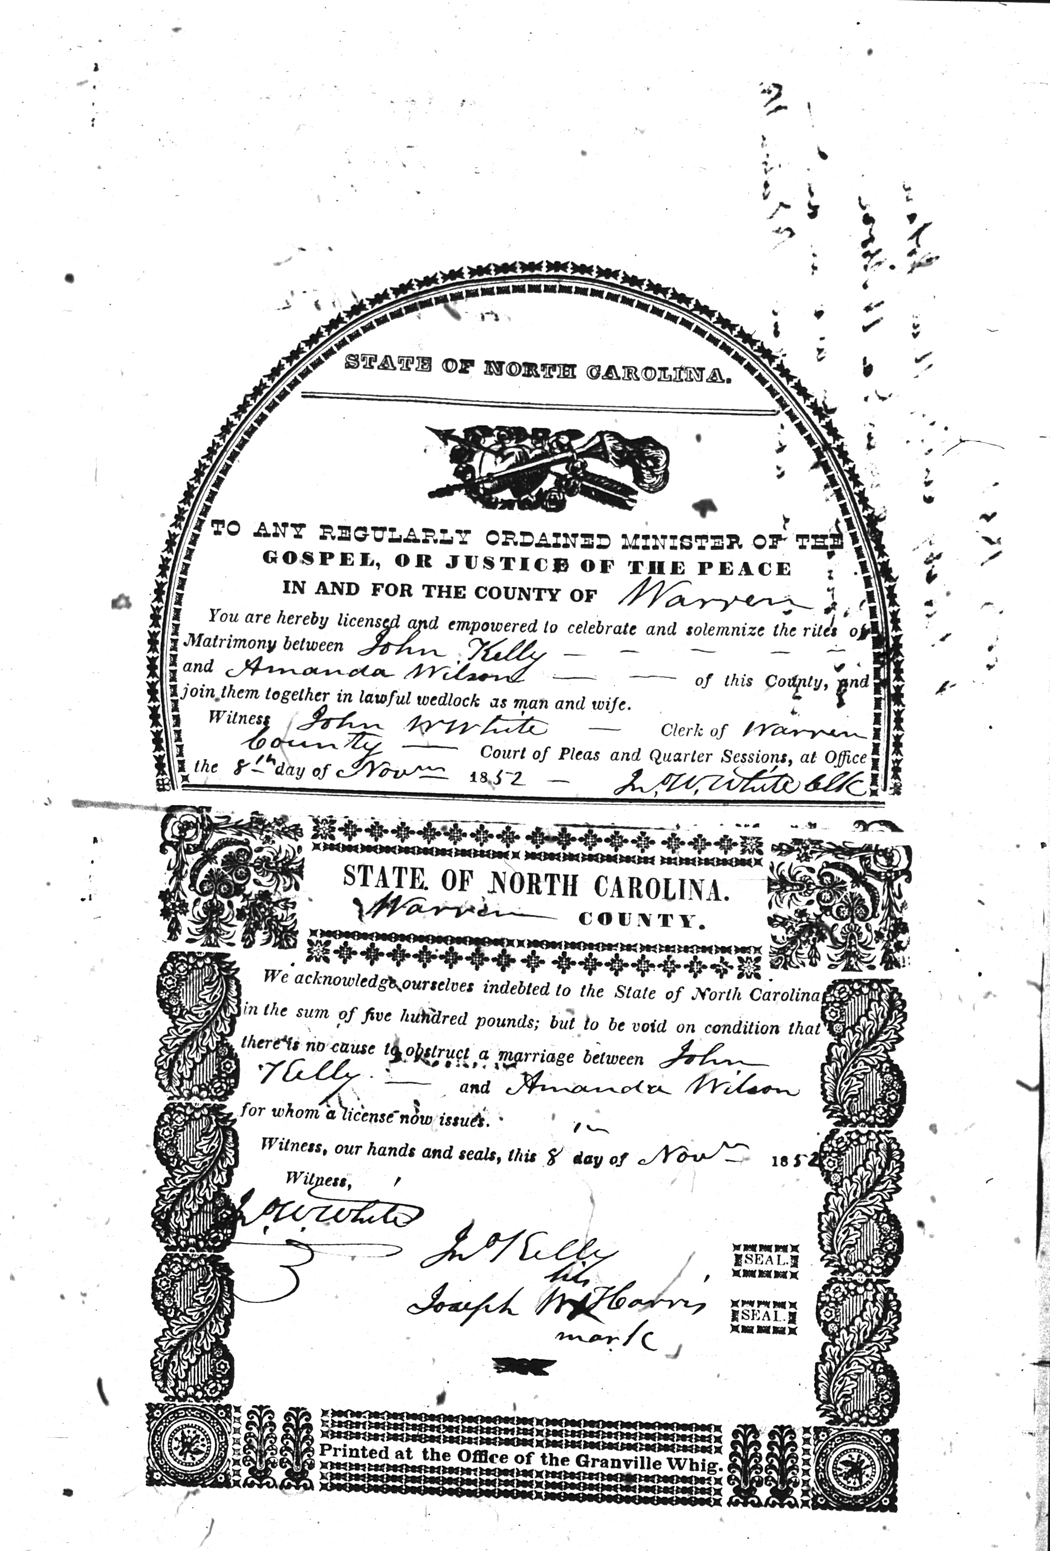 STATE OF NORTH CAROLINA.
TO ANY REGULARLY ORDAINED MINISTER OF THE
GOSPEL, OR JUSTICE OF THE PEACE
IN AND FOR THE COUNTY OF Warren
You are hereby licensed and empowered to celebrate and solemnize the rites of
Matrimony between John Kelly — — — — —
and Amanda Wilson — — of this County, and
join them together in lawful wedlock as man and wife.
Witness John W White — Clerk of Warren
County — Court of Pleas and Quarter Sessions, at Office
the 8th day of Novm 1852 — Jno. W. White Clk
STATE OF NORTH CAROLINA.
Warren COUNTY.
We acknowledge ourselves indebted to the State of North Carolina
in the sum of five hundred pounds; but to be void on condition that
there is no cause to obstruct a marriage between John
Kelly — and Amanda Wilson
for whom a license now issues.
Witness, our hands and seals, this 8th day of Novm 1852
Witness,
Jno. W. White
Jno Kelly SEAL.
his
Joseph W X Harris SEAL.
mark
Printed at the Office of the Granville Whig.